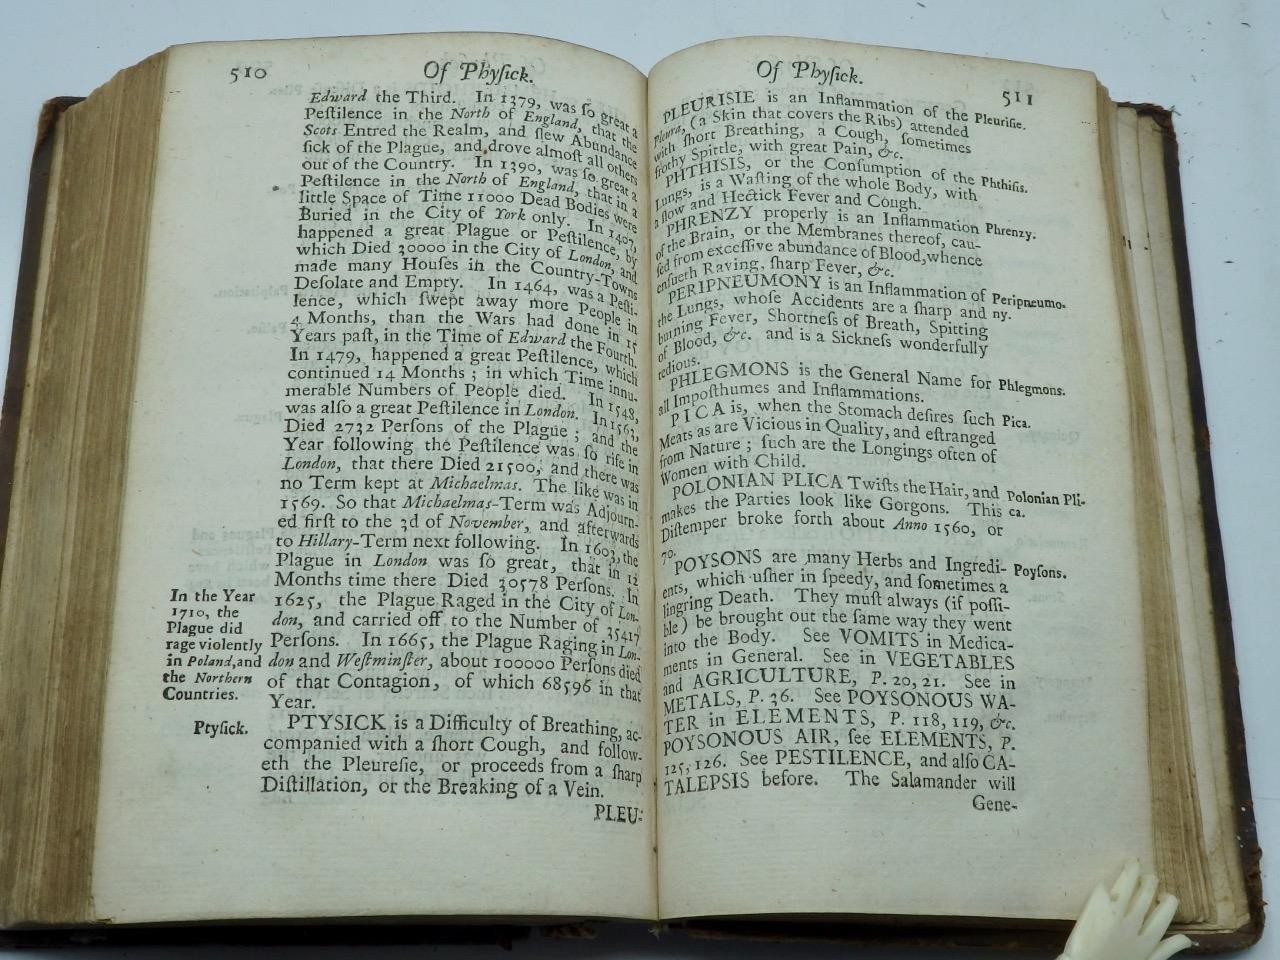 510
Of Phyſick.
Edward the Third. In 1379, was ſo great a
Peſtilence in the North of England, that the
Scots Entred the Realm, and ſlew Abundance
ſick of the Plague, and drove almoſt all others
out of the Country. In 1390, was ſo great a
Peſtilence in the North of England, that in a
little Space of Time 11000 Dead Bodies were
Buried in the City of York only. In 1407,
happened a great Plague or Peſtilence, by
which Died 30000 in the City of London, and
made many Houſes in the Country-Towns
Deſolate and Empty. In 1464, was a Peſti-
lence, which ſwept away more People in
4 Months, than the Wars had done in 15
Years paſt, in the Time of Edward the Fourth.
In 1479, happened a great Peſtilence, which
continued 14 Months; in which Time innu-
merable Numbers of People died. In 1548,
was alſo a great Peſtilence in London. In 1563,
Died 2732 Perſons of the Plague; and the
Year following the Peſtilence was ſo rife in
London, that there Died 21500, and there was
no Term kept at Michaelmas. The like was in
1569. So that Michaelmas-Term was Adjourn-
ed firſt to the 3d of November, and afterwards
to Hillary-Term next following. In 1603, the
Plague in London was ſo great, that in 12
Months time there Died 30578 Perſons. In
1625, the Plague Raged in the City of Lon-
don, and carried off to the Number of 35417
Perſons. In 1665, the Plague Raging in Lon-
don and Weſtminſter, about 100000 Perſons died
of that Contagion, of which 68596 in that
Year.
In the Year
1710, the
Plague did
rage violently
in Poland, and
the Northern
Countries.
Ptyſick.
PTYSICK is a Difficulty of Breathing, ac-
companied with a ſhort Cough, and follow-
eth the Pleureſie, or proceeds from a ſharp
Diſtillation, or the Breaking of a Vein.
PLEU-
Of Phyſick.
511
PLEURISIE is an Inflammation of the
Pleura, (a Skin that covers the Ribs) attended
with ſhort Breathing, a Cough, ſometimes
frothy Spittle, with great Pain, &c.
PHTHISIS, or the Conſumption of the
Lungs, is a Waſting of the whole Body, with
a ſlow and Hectick Fever and Cough.
PHRENZY properly is an Inflammation
of the Brain, or the Membranes thereof, cau-
ſed from exceſſive abundance of Blood, whence
enſueth Raving, ſharp Fever, &c.
PERIPNEUMONY is an Inflammation of
the Lungs, whoſe Accidents are a ſharp and
burning Fever, Shortneſs of Breath, Spitting
of Blood, &c. and is a Sickneſs wonderfully
tedious.
PHLEGMONS is the General Name for
all Impoſthumes and Inflammations.
PICA is, when the Stomach deſires ſuch
Meats as are Vicious in Quality, and eſtranged
from Nature; ſuch are the Longings often of
Women with Child.
POLONIAN PLICA Twiſts the Hair, and
makes the Parties look like Gorgons. This
Diſtemper broke forth about Anno 1560, or
70.
POYSONS are many Herbs and Ingredi-
ents, which uſher in ſpeedy, and ſometimes a
lingring Death. They muſt always (if poſſi-
ble) be brought out the ſame way they went
into the Body. See VOMITS in Medica-
ments in General. See in VEGETABLES
and AGRICULTURE, P. 20, 21. See in
METALS, P. 36. See POYSONOUS WA-
TER in ELEMENTS, P. 118, 119, &c.
POYSONOUS AIR, ſee ELEMENTS, P.
125, 126. See PESTILENCE, and alſo CA-
TALEPSIS before. The Salamander will
Gene-
Pleuriſie.
Phthiſis.
Phrenzy.
Peripneumo-
ny.
Phlegmons.
Pica.
Polonian Pli-
ca.
Poyſons.